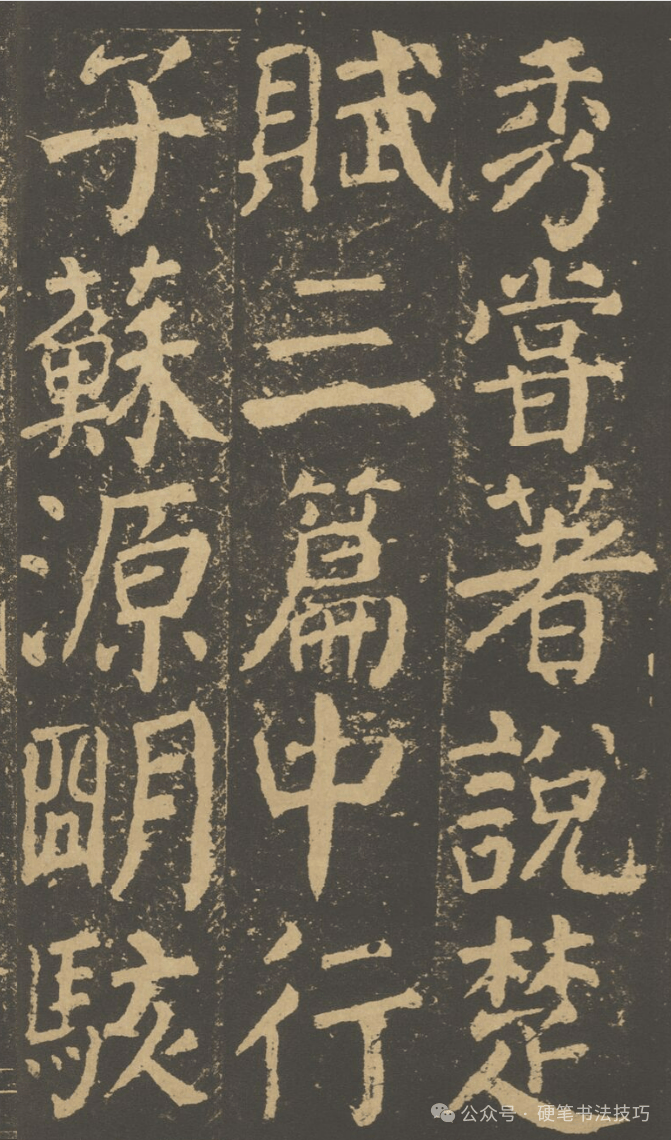 秀嘗著說楚
賦三篇中行
子蘇源明駭
公众号·硬笔书法技巧